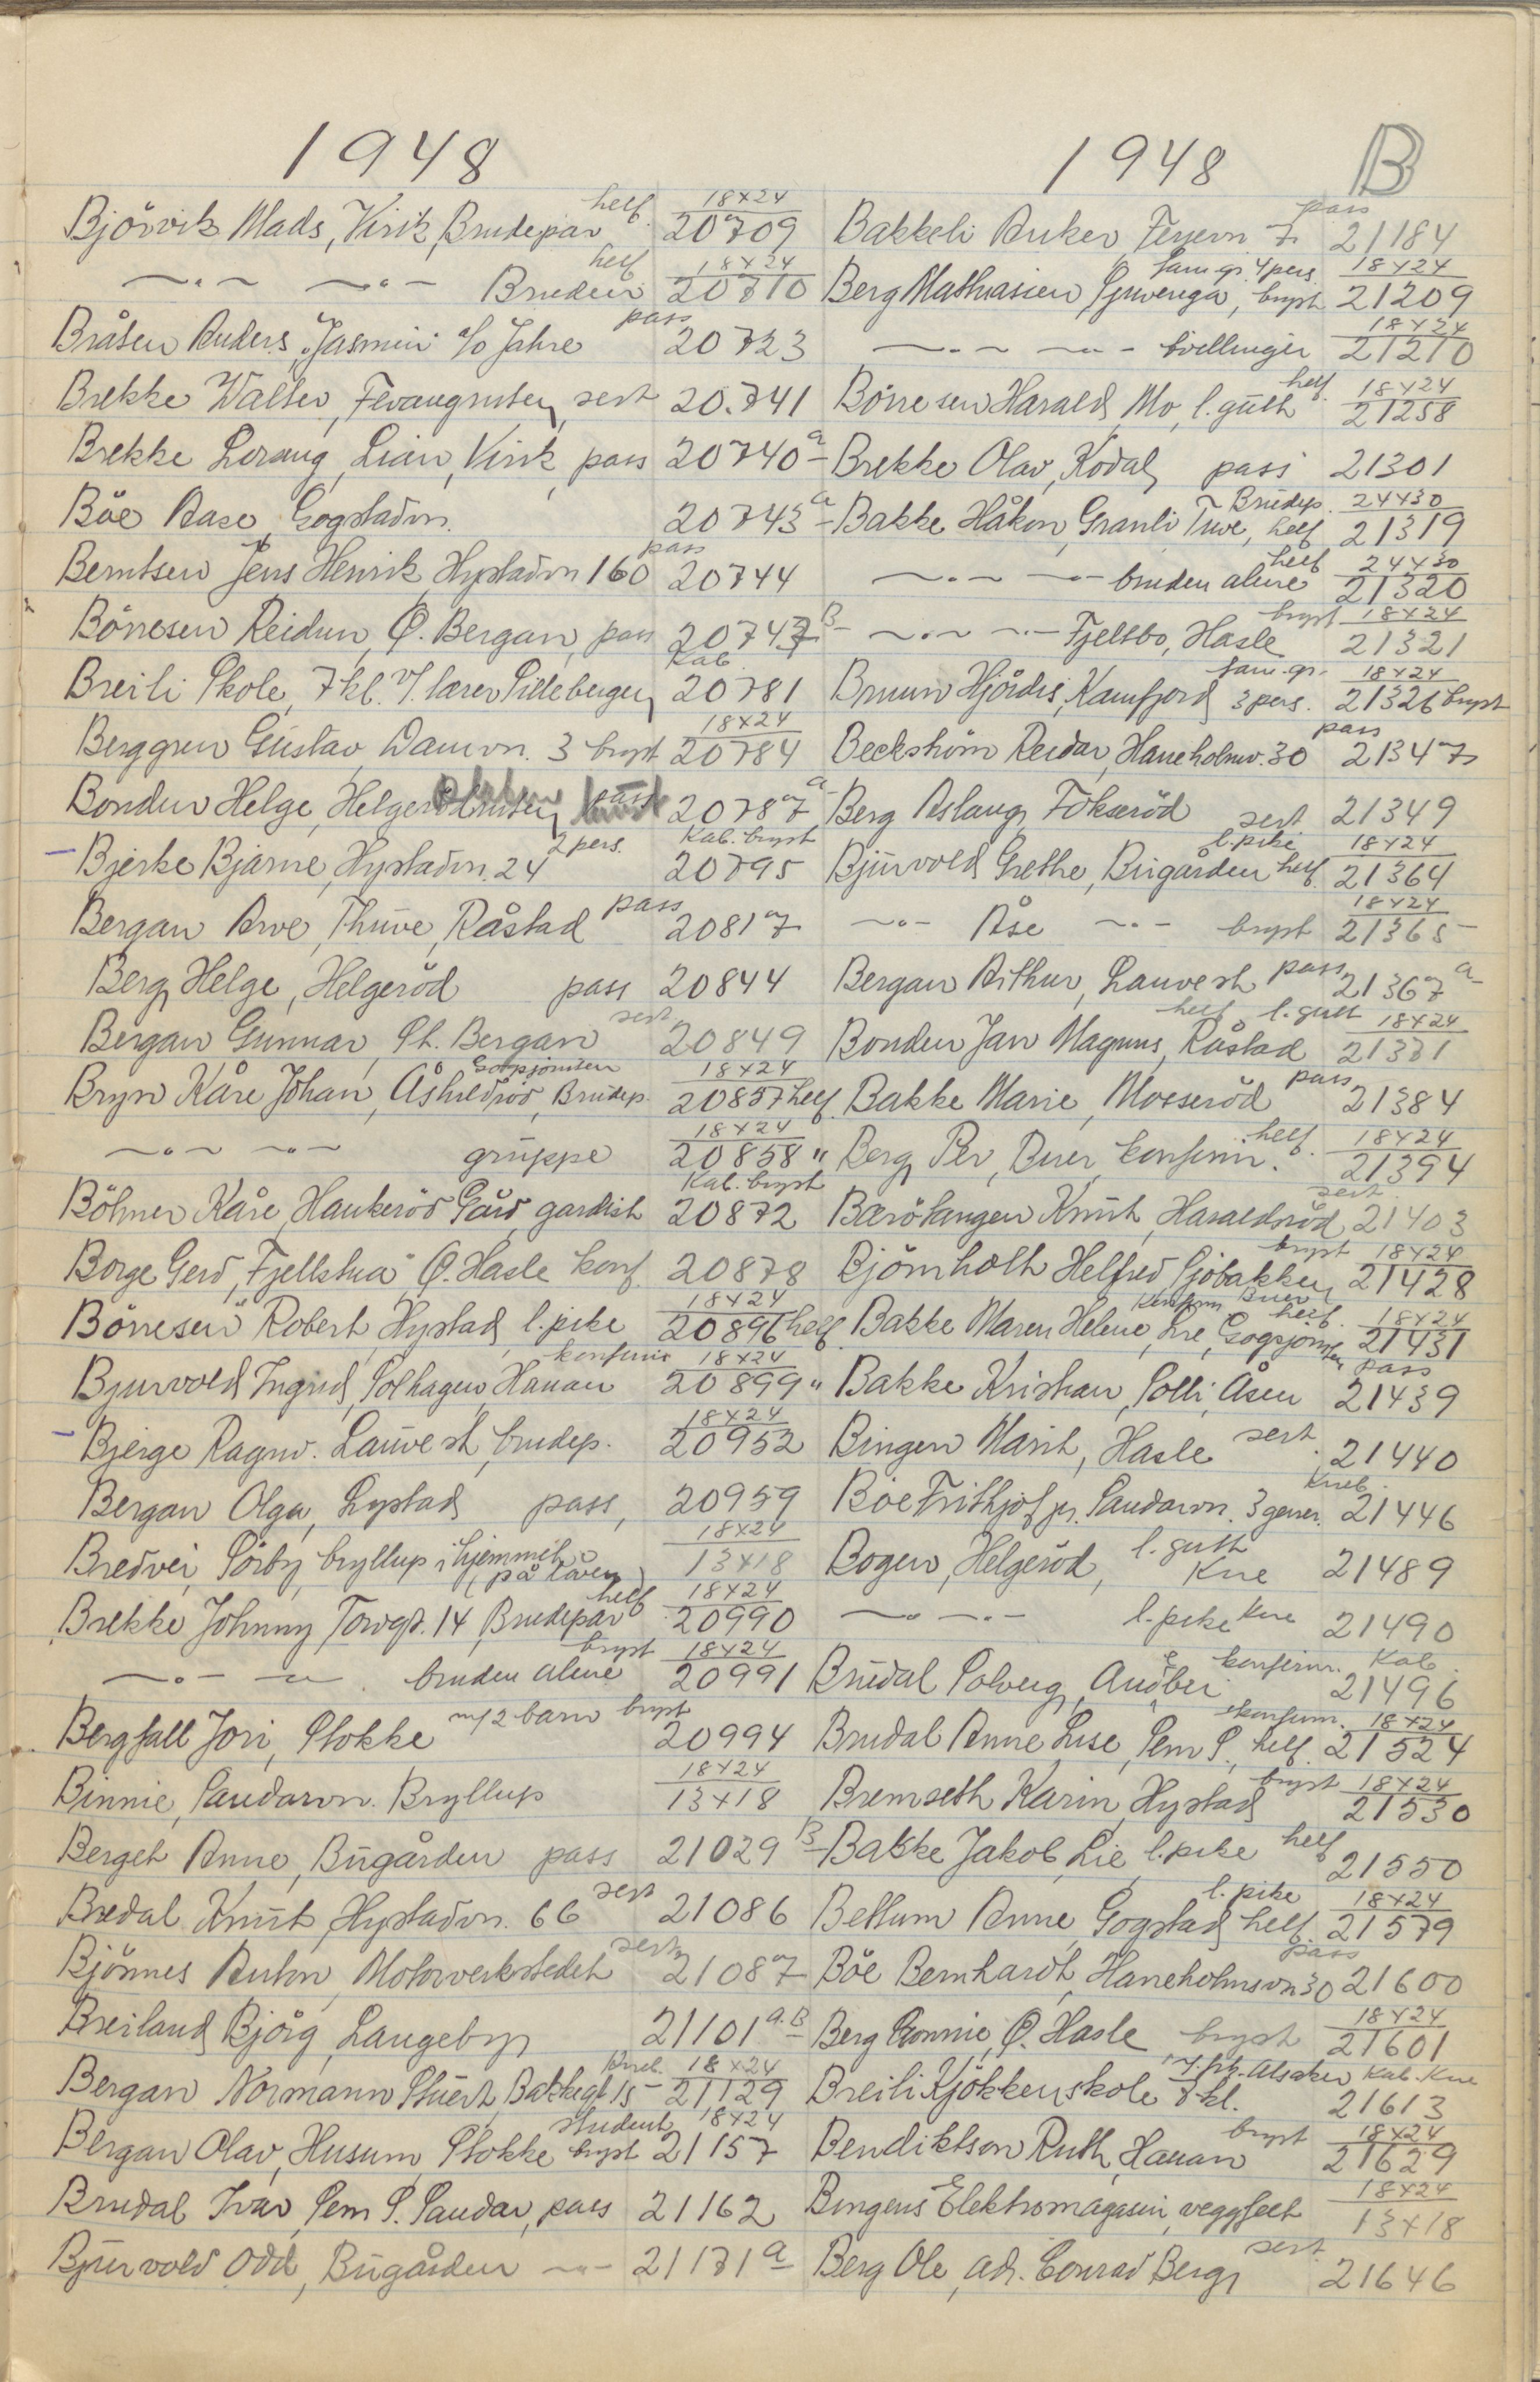 1948
Bjövvik Mads, Virik, Brudepar helf. 18x24 20709
—.— —.— Bruden helf 18x24 20710
Bråten Anders, "Jasmin" c/o Jahre pass 20723
Brekke Walter, Fevangruten, sert 20.741
Brekke Loraug, Lian, Virik, pass 20740 a
Böe Aase, Gogstadvn. 20743 a
Berntsen Jens Henrik, Hystadvn 160 pass 20744
Börresen Reidun, Ö. Bergan, pass 20747 B
Breili Skole, 7 kl. v/ lærer Silleberger, Kab. 20781
Berggren Gustav, Damvn. 3 bryst 18x24 20784
Bonden Helge, Helgeröd pass 20787 a
Bjerke Bjarne, Hystadvn. 24 2 pers. Kab. bryst 20795
Bergan Arve, Thuve, Råstad pass 20817
Berg Helge, Helgeröd pass 20844
Bergan Gunnar, St. Bergan sert. 20849
Bryn Kåre Johan, Åshildröd, Goksjöruten Brudep. 18x24 20857 helf.
—.— —.— gruppe 18x24 20858 "
Böhmer Kåre, Haukeröd Gård, gardist Kab. bryst 20872
Borge Gerd, "Fjellstua" Ö. Hasle konf. 20878
Börresen Robert, Hystad, l. pike 18x24 20896 helf.
Bjurvold Ingrid, Solhagen, Hauan konfirm 18x24 20899 "
Bjerge Ragnv. Lauve st, brudep. 18x24 20952
Bergan Olga, Lystad, pass, 20959
Bredvei, Sörby, bryllup i hjemmet (på låven) 18x24 13x18
Brekke Johnny, Torvgt. 14, Brudepar helf 18x24 20990
—.— —.— bruden alene bryst 18x24 20991
Bergfall Jori, Stokke m/2 barn bryst 20994
Binnie, Sandarvn. Bryllup 18x24 13x18
Berget Anne, Bugården pass 21029 B
Bredal Knut, Hystadvn. 66 sert 21086
Bjönnes Anton, Motorverkstedet sert 21087
Breiland Björg, Langeby 21101 a.B
Bergan Normann Stuert, Bakkegt 15 Kneb. 18x24 21129
Bergan Olav, Husum, Stokke student bryst 18x24 21157
Brudal Ivar, Sem S. Sandar, pass 21162
Bjurvold Odd, Bugården —.— 21171 a

1948 B
Bakkeli Anker, Feyervn 7 pass 21184
Berg Mathiasen, Gjuvenga, bryst fam gr. 4 pers. 18x24 21209
—.— —.— tvillinger 18x24 21210
Börresen Harald, Mo, l. gutt helf. 18x24 21258
Brekke Olav, Kodal, pass 21301
Bakke Håkon, Granli Tuve, helf Brudep. 24x30 21319
—.— —.— bruden alene helf 24x30 21320
—.— —.— Fjeltbo, Hasle bryst 18x24 21321
Bruun Hjördis, Kamfjord, 3 pers. fam. gr. 18x24 21326 bryst
Beckström Reidar, Haneholmv. 30 pass 21347
Berg Aslaug, Fokseröd sert 21349
Bjurvold Grethe, Bugården helf. l. pike 18x24 21364
—.— Åse —.— bryst 18x24 21365
Bergan Arthur, Lauve st pass 21367 a
Bonden Jan Magnus, Råstad helf. l. gutt 18x24 21371
Bakke Marie, Moseröd pass 21384
Berg Per, Buer, konfirm. helf. 18x24 21394
Bærötangen Knut, Haraldsröd sert. 21403
Björnholt Helfred, Sjöbakken bryst 18x24 21428
Bakke Maren Helene, Lie, Gogsjöruten Konfirm Buer helf. 18x24 21431
Bakke Kristian, Solli, Åsen pass 21439
Bingen Marit, Hasle sert. 21440
Böe Frithjof jr. Sandarvn. 3 gener. Kneb. 21446
Bogen, Helgeröd, l. gutt Kne 21489
—.— —.— l. pike Kne 21490
Brudal Solveig, Audbei konfirm. Kab. 21496
Brudal Anne Lise, Sem S, helf. konfirm. 18x24 21524
Bremseth Karin, Hystad bryst 18x24 21530
Bakke Jakob, Lie l. pike helf 21550
Bettum Anne, Gogstad helf. l. pike 18x24 21579
Böe Bernhardt, Haneholmsvn 30 pass 21600
Berg Connie, Ö. Hasle bryst 18x24 21601
Breili Kjökkenskole 8 kl. v. frk. Alsaker Kab. Kne 21613
Bendiktson Ruth, Hauan bryst 18x24 21629
Bingens Elektromagasin, veggfelt 18x24 13x18
Berg Ole, adr. Conrad Berg, sert. 21646